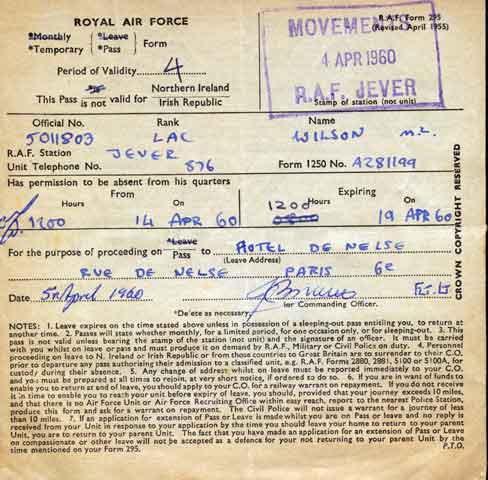 ROYAL AIR FORCE
R.A.F. Form 295
(Revised April 1955)
*Monthly *Leave
*Temporary *Pass Form
MOVEMENTS
4 APR 1960
R.A.F. JEVER
Stamp of station (not unit)
Period of Validity 4
This Pass is not valid for Northern Ireland
Irish Republic
Official No. Rank Name
5011803 LAC WILSON M.L.
R.A.F. Station JEVER
Unit Telephone No. 876 Form 1250 No. A281199
Has permission to be absent from his quarters
From Expiring
Hours On 1200 Hours On
1200 14 APR 60 0800 19 APR 60
For the purpose of proceeding on *Leave Pass to HOTEL DE NELSE
(Leave Address)
RUE DE NELSE PARIS 6e
Date 5th April 1960 Flt Lt
*Delete as necessary. for Commanding Officer.
CROWN COPYRIGHT RESERVED
NOTES: 1. Leave expires on the time stated above unless in possession of a sleeping-out pass entitling you, to return at
another time. 2. Passes will state whether monthly, for a limited period, for one occasion only, or for sleeping-out. 3. This
pass is not valid unless bearing the stamp of the station (not unit) and the signature of an officer. It must be carried
with you whilst on leave or pass and must produce it on demand by R.A.F., Military or Civil Police on duty. 4. Personnel
proceeding on leave to N. Ireland or Irish Republic or from those countries to Great Britain are to surrender to their C.O.
prior to departure any pass authorising their admission to a classified unit, e.g. R.A.F. Forms 2280, 2881, 5100 or 5100A, for
custody during their absence. 5. Any change of address whilst on leave must be reported immediately to your C.O.
and you must be prepared at all times to rejoin, at very short notice, if ordered to do so. 6. If you are in want of funds to
enable you to return at end of leave, you should apply to your C.O. for a railway warrant on repayment. If you do not receive
it in time to enable you to reach your unit before expiry of leave, you should, provided that your journey exceeds 10 miles,
and that there is no Air Force Unit or Air Force Recruiting Office within easy reach, report to the nearest Police Station,
produce this form and ask for a warrant on repayment. The Civil Police will not issue a warrant for a journey of less
than 10 miles. 7. If an application for extension of Pass or Leave is made whilst you are on Pass or leave and no reply is
received from your Unit in response to your application by the time you should leave your home to return to your parent
Unit, you are to return to your parent Unit. The fact that you have made an application for an extension of Pass or Leave
on compassionate or other leave will not be accepted as a defence for your not returning to your parent Unit by the
time mentioned on your Form 295.
P.T.O.